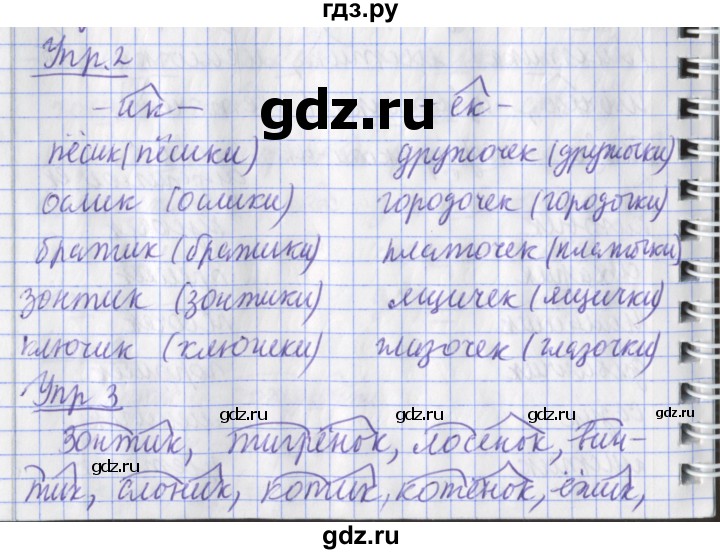 гдз.ру
Упр. 2
-ик- ек-
gdz.ru
пёсик (пёсики) дружочек (дружочки)
ослик (ослики) городочек (городочки)
братик (братики) платочек (платочки)
зонтик (зонтики) ящичек (ящички)
ключик (ключики) глазочек (глазочки)
Упр 3
gdz.ru gdz.ru gdz.ru
зонтик, тигрёнок, лосёнок, вин-
gdz.ru gdz.ru
тик, слоник, котик, котёнок, ёжик,
gdz.ru